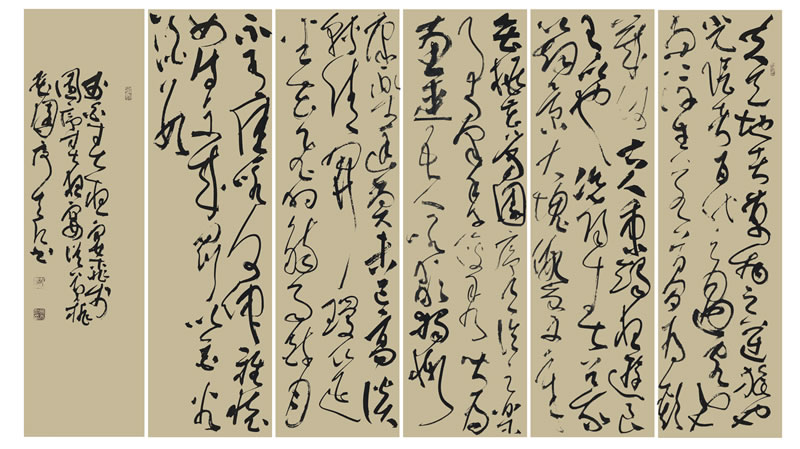 夫天地者萬物之逆旅也
光陰者百代之過客也
而浮生若夢為歡
幾何古人秉燭夜遊良
有以也況陽春召我
以烟景大塊假我以文章
會桃花之芳園序天倫之樂
事群季俊秀皆為
惠連吾人詠歌獨慚
康樂幽賞未已高談
轉清開瓊筵以
坐花飛羽觴而醉月
不有佳詠何伸雅懷
如詩不成罰依金谷
酒數